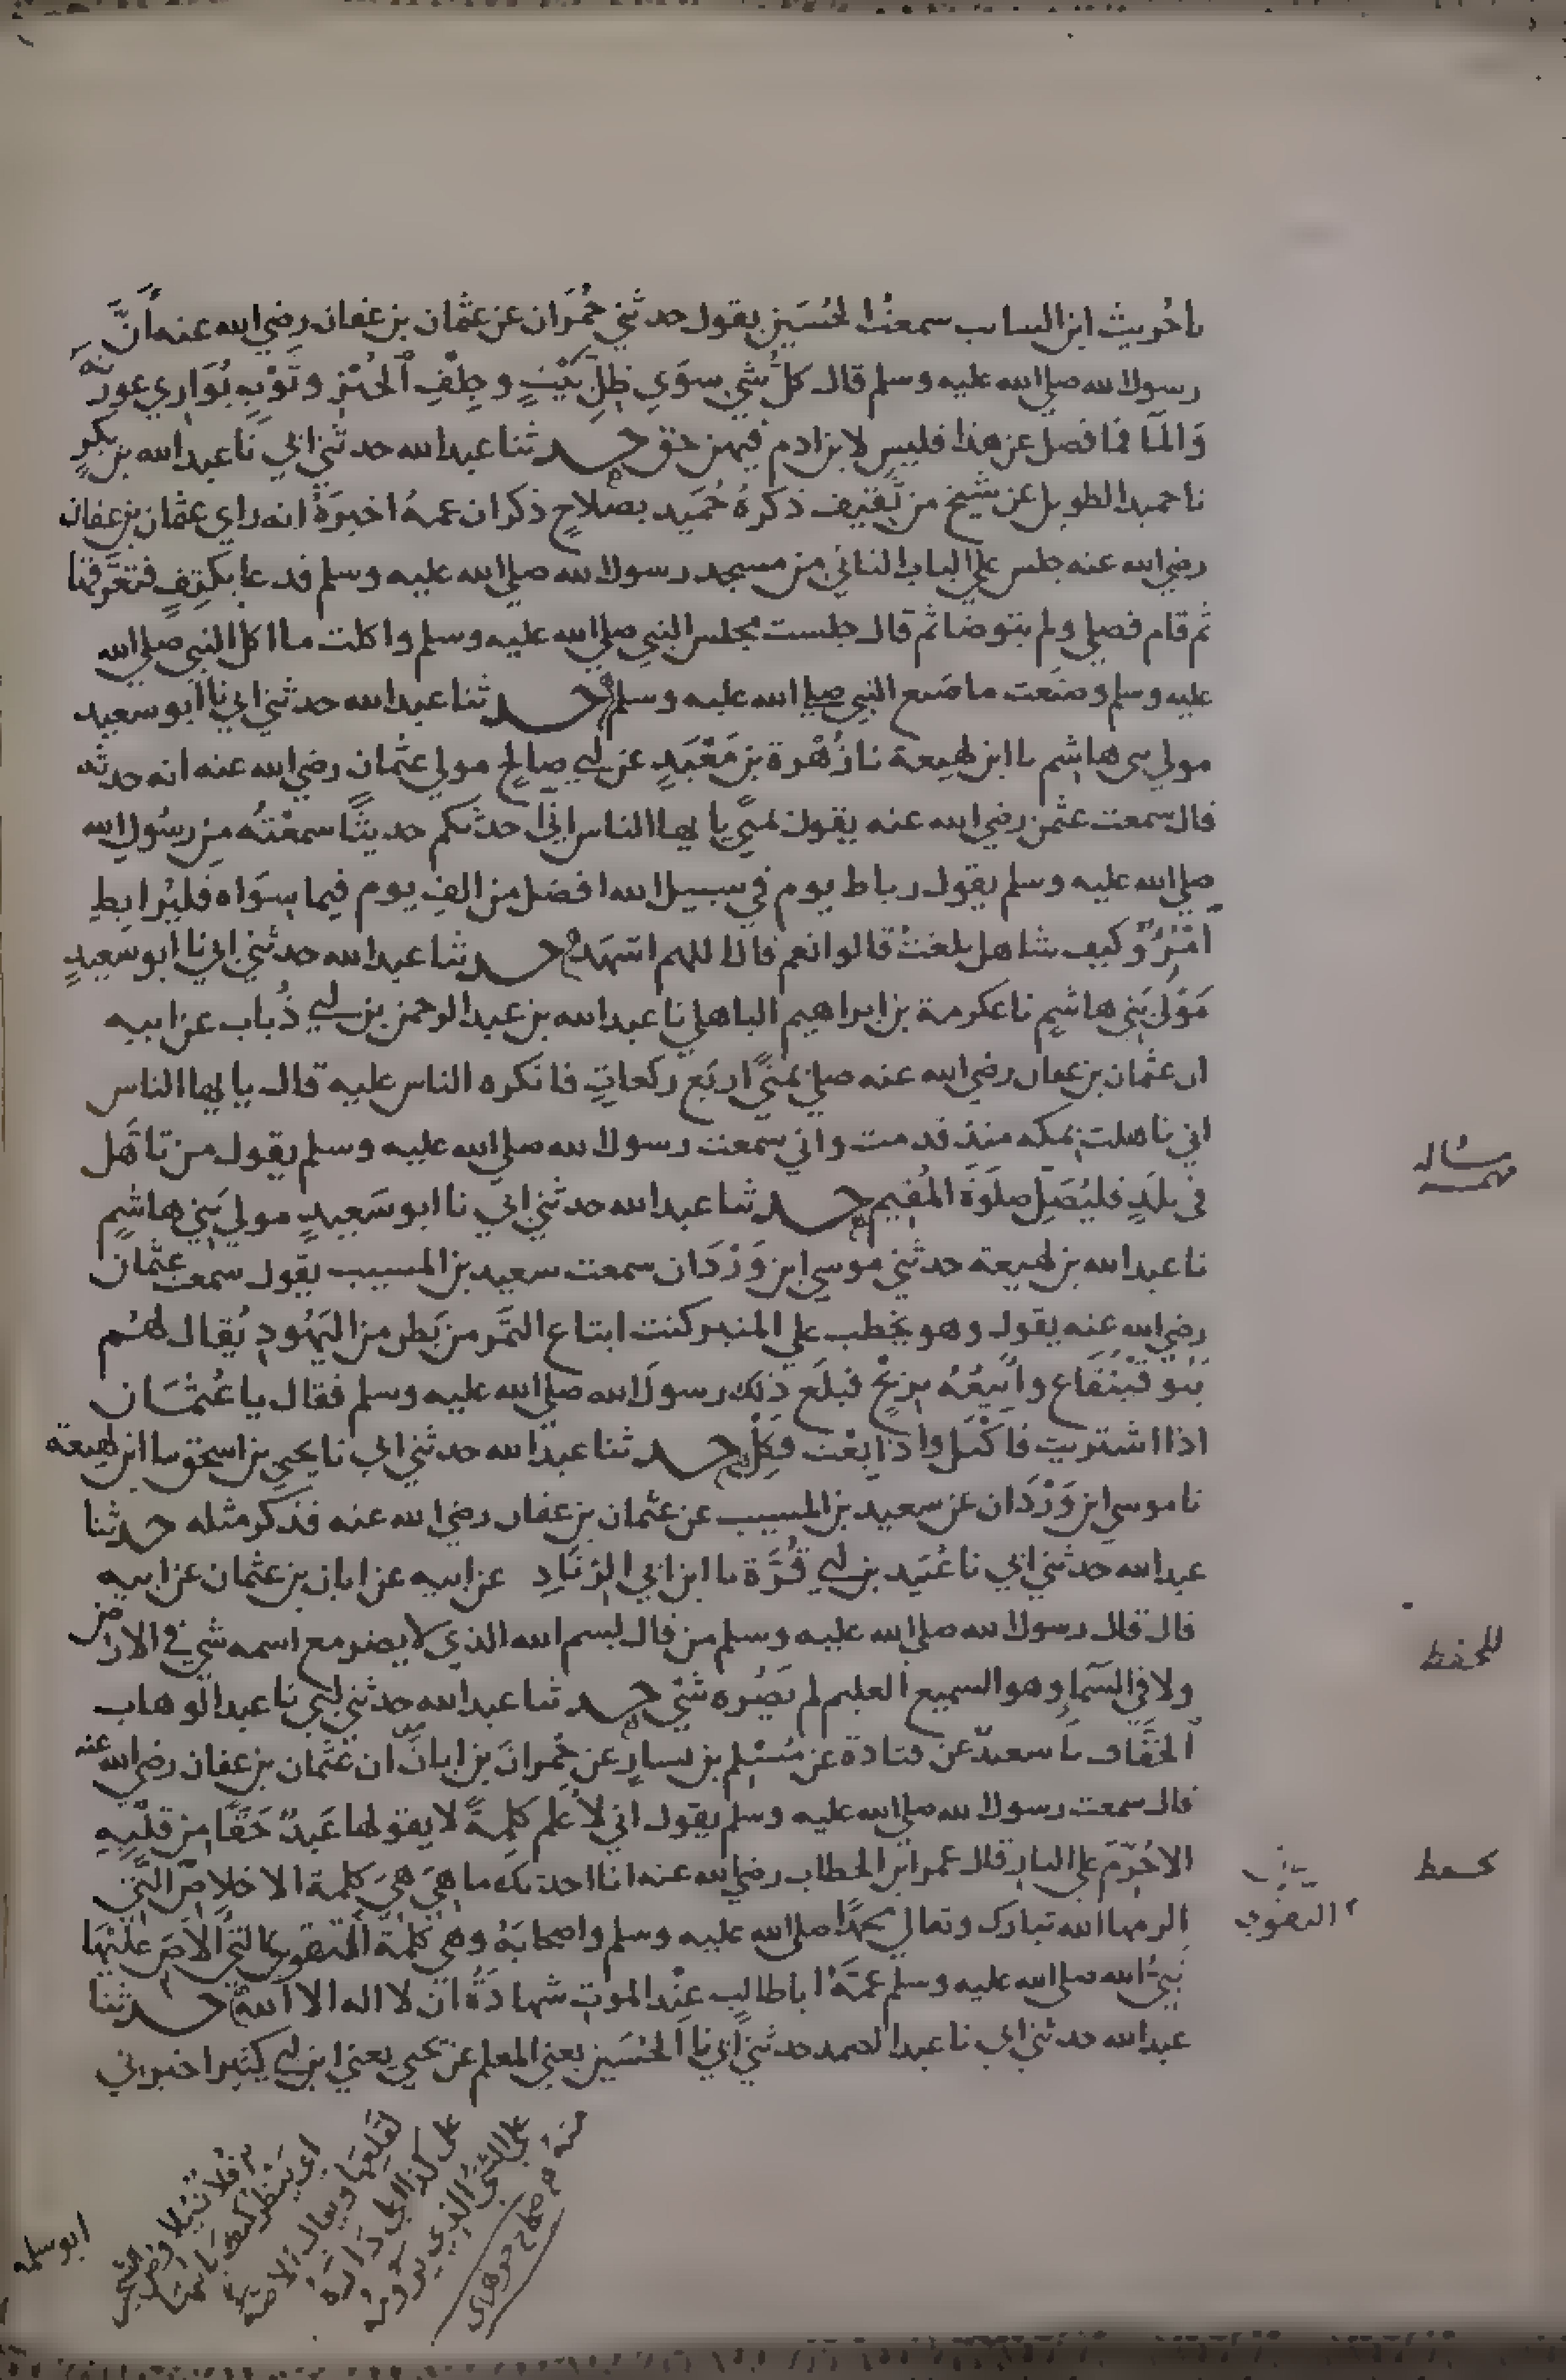 نا حُريث ابن السايب سمعتُ الحُسَين يقول حدثني حُمْرَان عن عثمان بن عفان رضي الله عنه أَنَّ
رسول الله صلي الله عليه وسلم قال كلُّ شي سوَي ظِلِّ بَيْتٍ وجِلْفِ الخُبْزِ وثَوْبٍ يُوَارِي عورته
وَالمآ فما فضل عن هذا فليس لابن ادم فيهن حق حدثنا عبد الله حدثني ابي نا عبد الله بن بكرٍ
نا حميد الطويل عن شيخ من ثقيف ذكرهُ حُمَيد بصلاحٍ ذكر ان عمهُ اخبرَهُ انه راي عثمان بن عفان
رضي الله عنه جلس علي الباب الثاني من مسجد رسول الله صلي الله عليه وسلم فدعا بكَتِفٍ فتعَرَّقها
ثم قام فصلي ولم يتوضا ثم قال جلست مجلس النبي صلي الله عليه وسلم واكلت ما اكل النبي صلي الله
عليه وسلم وصنعت ما صنع النبي صلي الله عليه وسلم حدثنا عبد الله حدثني ابي نا ابو سعيد
مولي بني هاشم نا ابن لهيعة نا زُهْرة بن مَعْبَدٍ عن ابي صالح مولي عثمان رضي الله عنه انه حدثه
قال سمعت عثمن رضي الله عنه يقول بمنًي يا يها الناس اني احدثكم حديثًا سمعتُه من رسول الله
صلي الله عليه وسلم يقول رباط يوم في سبيل الله افضل من الف يوم فيما سِوَاه فليُرابط
امْرُؤٌ كيف شا هل بلغتُ قالوا نعم قال اللهم اشهد حدثنا عبد الله حدثني ابي نا ابو سعيدٍ
مَوْلَي بَنِي هاشم نا عكرمة بن ابراهيم الباهلي نا عبد الله بن عبد الرحمن بن ابي ذُباب عن ابيه
ان عثمان بن عفان رضي الله عنه صلي بمنًي اربَع ركعاتٍ فانكره الناس عليه فقال يا يها الناس
اني تاهلت بمكه منذ قدمت واني سمعت رسول الله صلي الله عليه وسلم يقول من تاهَّل
في بلَدٍ فليُصَلِّ صلوَةَ المُقيم حدثنا عبد الله حدثني ابي نا ابو سَعيدٍ مولي بَنِي هاشمٍ
نا عبد الله بن لهيعة حدثني موسي ابن وَرْدَان سمعت سعيد بن المسيب يقول سمعت عثمان
رضي الله عنه يقول وهو يخطب علي المنبر كنت ابتاع التمَر من بَطنٍ من اليَهُودِ يُقال لهُم
بَنو قَيْنُقَاع وابيعُهُ بربْحٍ فبلَغ ذلك رسولَ الله صلي الله عليه وسلم فقال يا عُثمَان
اذا اشتريت فاكْتَل واذا بعْت فَكِلْ حدثنا عبد الله حدثني ابي نا يحيي بن اسحق نا ابن لهيعة
نا موسي ابن وَرْدَان عن سعيد بن المسيب عن عثمان بن عفان رضي الله عنه فذكر مثله حدثنا
عبد الله حدثني ابي نا عُبَيد بن ابي قُرَّة نا ابن ابي الزِّنَادِ عن ابيه عن ابان بن عثمان عن ابيه
قال قال رسول الله صلي الله عليه وسلم من قال بسم الله الذي لا يضر مع اسمه شي في الارض
ولا في السَّمآءِ وهو السميع العليم لم يَضُره شيْ حدثنا عبد الله حدثني ابي نا عبد الوهاب
الخفَّاف نا سعيدٌ عن قتادة عن مُسْلم بن يسارٍ عن حُمرانَ بن ابانَ ان عُثمان بن عفان رضي الله عنه
قال سمعت رسول الله صلي الله عليه وسلم يقول اني لأعلم كَلِمةً لا يقولها عَبدٌ حَقًّا من قلْبِهِ
الا حُرِّمَ علي النارِ قال عمر ابن الخطاب رضي الله عنه انا احدثك ما هِيَ هِيَ كلمة الاخلاصِ التي
الزمها الله تبارك وتعالي محمدًا صلي الله عليه وسلم واصحابَهُ وهي كلمة التقوي التي الَاصَ عليْهَا
نبيُّ الله صلي الله عليه وسلم عمَّهُ ابا طالب عِنْد الموتِ شهادَةُ ان لا اله الا الله حدثنا
عبد الله حدثني ابي نا عبد الصمد حدثني ابي نا الحُسَين يعني المعلم عن يحيي يعني ابن ابي كثير اخبرني
مسَاله
مهمه
للحفظ
يحفظ
التقوي
ابو سلمه